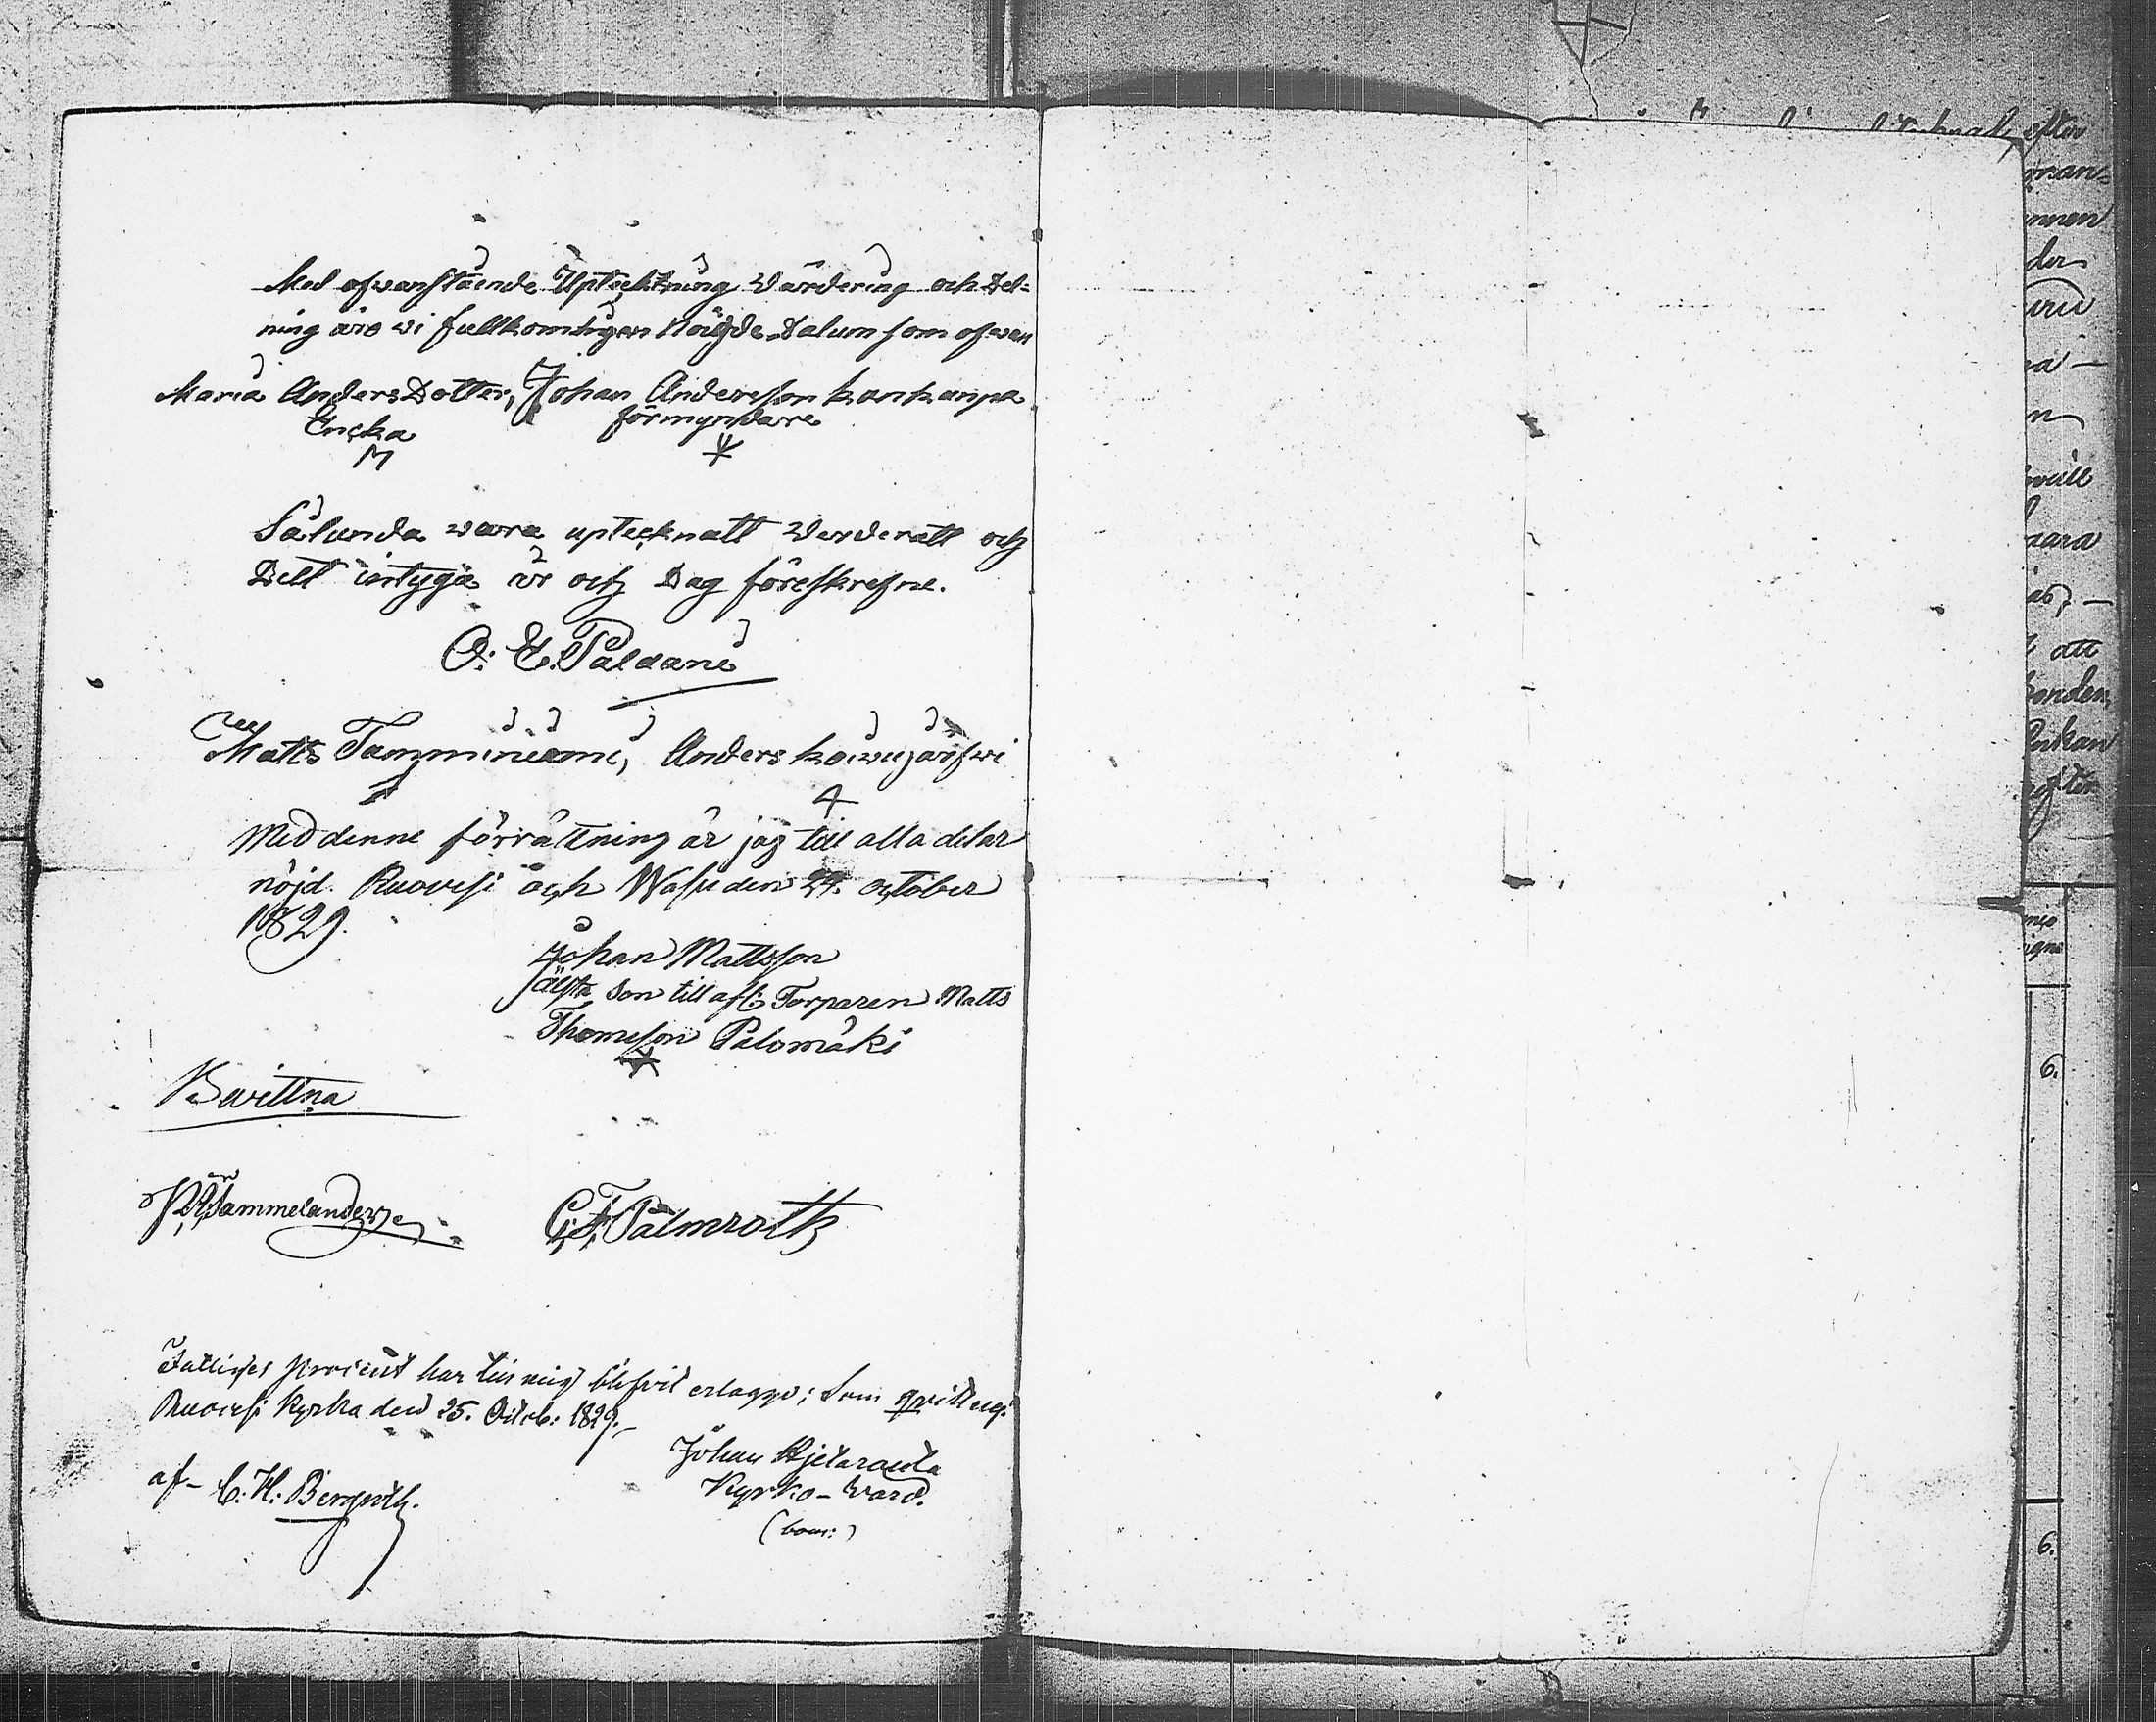 Med ofwanstående Upteckning Wärdering och Del-
ning äro wi fullkomligen Nöigde Datum som ofwan
Maria Anders Dotter, Johan Andersson Kankanpä
Encka förmyndare
M
Sålunda wara uptecknatt Werderatt och
Delt intyga år och Dag föreskrefne.
O: E. Paldani
Matts Tamminiemi, Anders Koiwujärfwi
4
Med denne förrättning är jag till alla delar
nöjd. Ruovesi och Wasu den 24. october
1829.
Johan Mattsson
älsta son till afl: Torparen Matts
Thomasson Palomäki
Bevittna
C: F. Palmroth
Fattiges procent har till mig blifvit erlaggd; som qvitteras.
Ruovesi Kyrka den 25. Octob: 1829.
Johan
Kyrko-Värd.
af - C: H: Bergroth.
efter
nnen
der
att
onden,
nkan
6.
6.